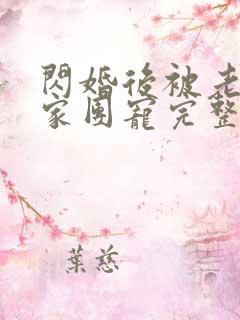 閃婚後被老
家團寵完整
葉慈